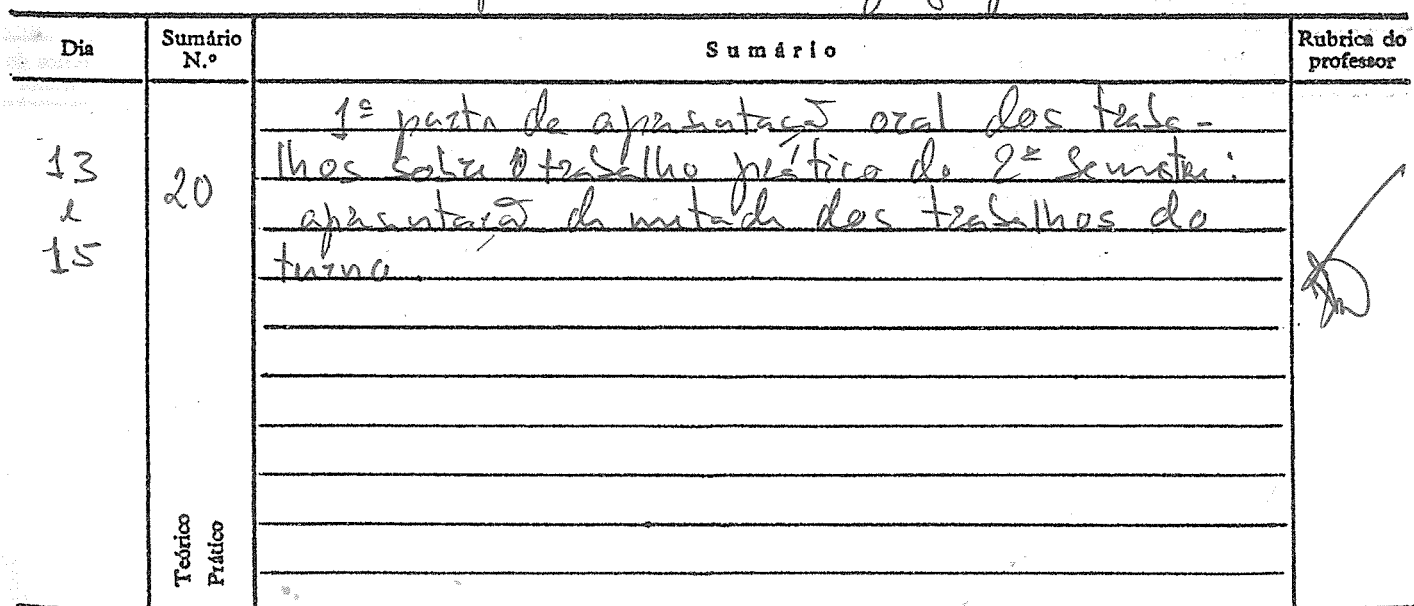 Dia
Sumário N.º
Sumário
Rubrica do professor
13 e 15
20
1ª parte de apresentação oral dos traba-
lhos sobre o trabalho prático do 2º Semestre:
apresentação de metade dos trabalhos do
turno.
Teórico
Prático